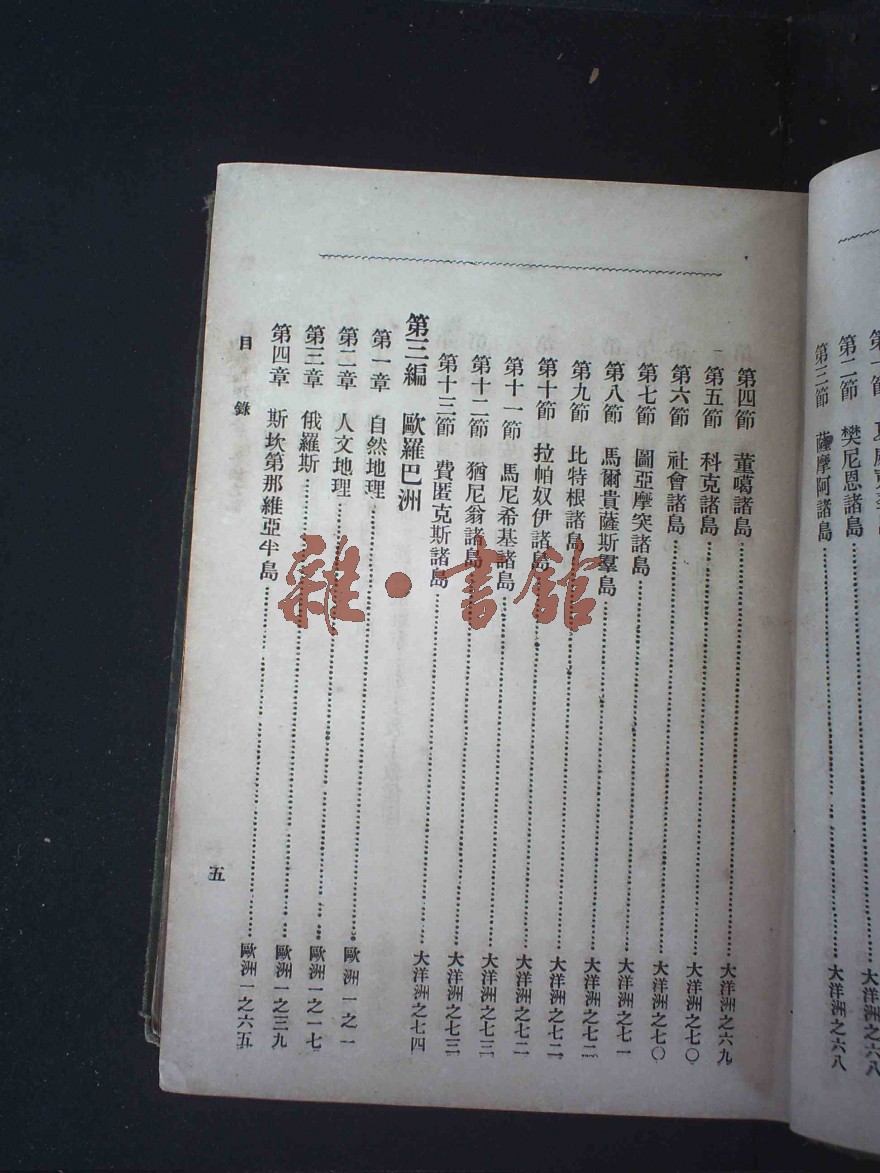 第二節 樊尼恩諸島 大洋洲之六八
第三節 薩摩阿諸島 大洋洲之六八
第四節 董噶諸島 大洋洲之六九
第五節 科克諸島 大洋洲之七〇
第六節 社會諸島 大洋洲之七〇
第七節 圖亞摩突諸島 大洋洲之七一
第八節 馬爾貴薩斯羣島 大洋洲之七二
第九節 比特根諸島 大洋洲之七二
第十節 拉帕奴伊諸島 大洋洲之七二
第十一節 馬尼希基諸島 大洋洲之七三
第十二節 猶尼翁諸島 大洋洲之七三
第十三節 費匿克斯諸島 大洋洲之七四
第三編 歐羅巴洲
第一章 自然地理 歐洲一之一
第二章 人文地理 歐洲一之一七
第三章 俄羅斯 歐洲一之三九
第四章 斯坎第那維亞半島 歐洲一之六五
目錄
五
雜·書館